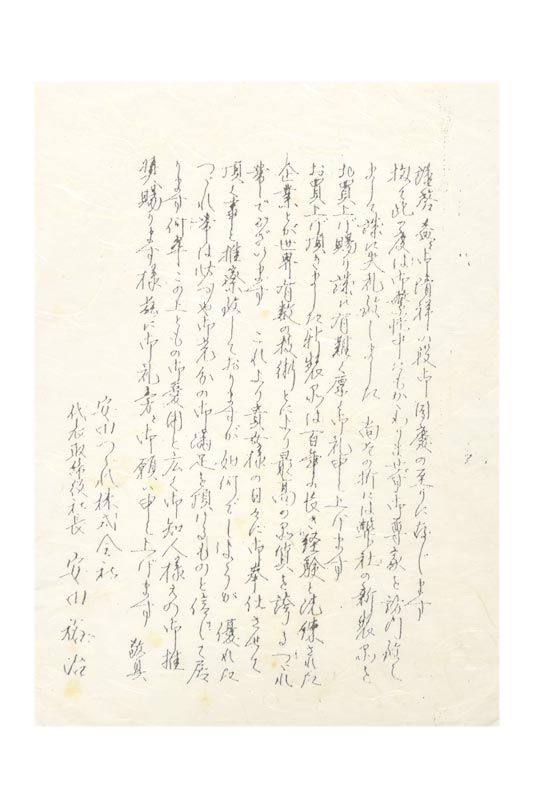 謹啓 益々御清祥の段御同慶の至りに存じます
扨て此の度は御繁忙中にもかかわりませず御尊家を訪門致し
まして誠に失礼致しました 尚その折には弊社の新製品を
お買上げ賜り誠に有難く厚く御礼申し上げます
お買上げ頂きました新製品は百年の長き経験と洗練された
企業とが世界有数の技術とにより最高の品質を誇るつづれ
帯でございます これより貴女様の日々に御奉仕させて
頂く事と推察致しておりますが如何でしょうか 優れた
つづれ帯は必ずや御若々の御満足を頂けるものと信じて居
ります何卒この上ともの御愛用と広く御知人様えの御推
奨賜ります様茲に御礼旁々御願い申し上げます
敬具
安田つづれ株式会社
代表取締役社長 安田